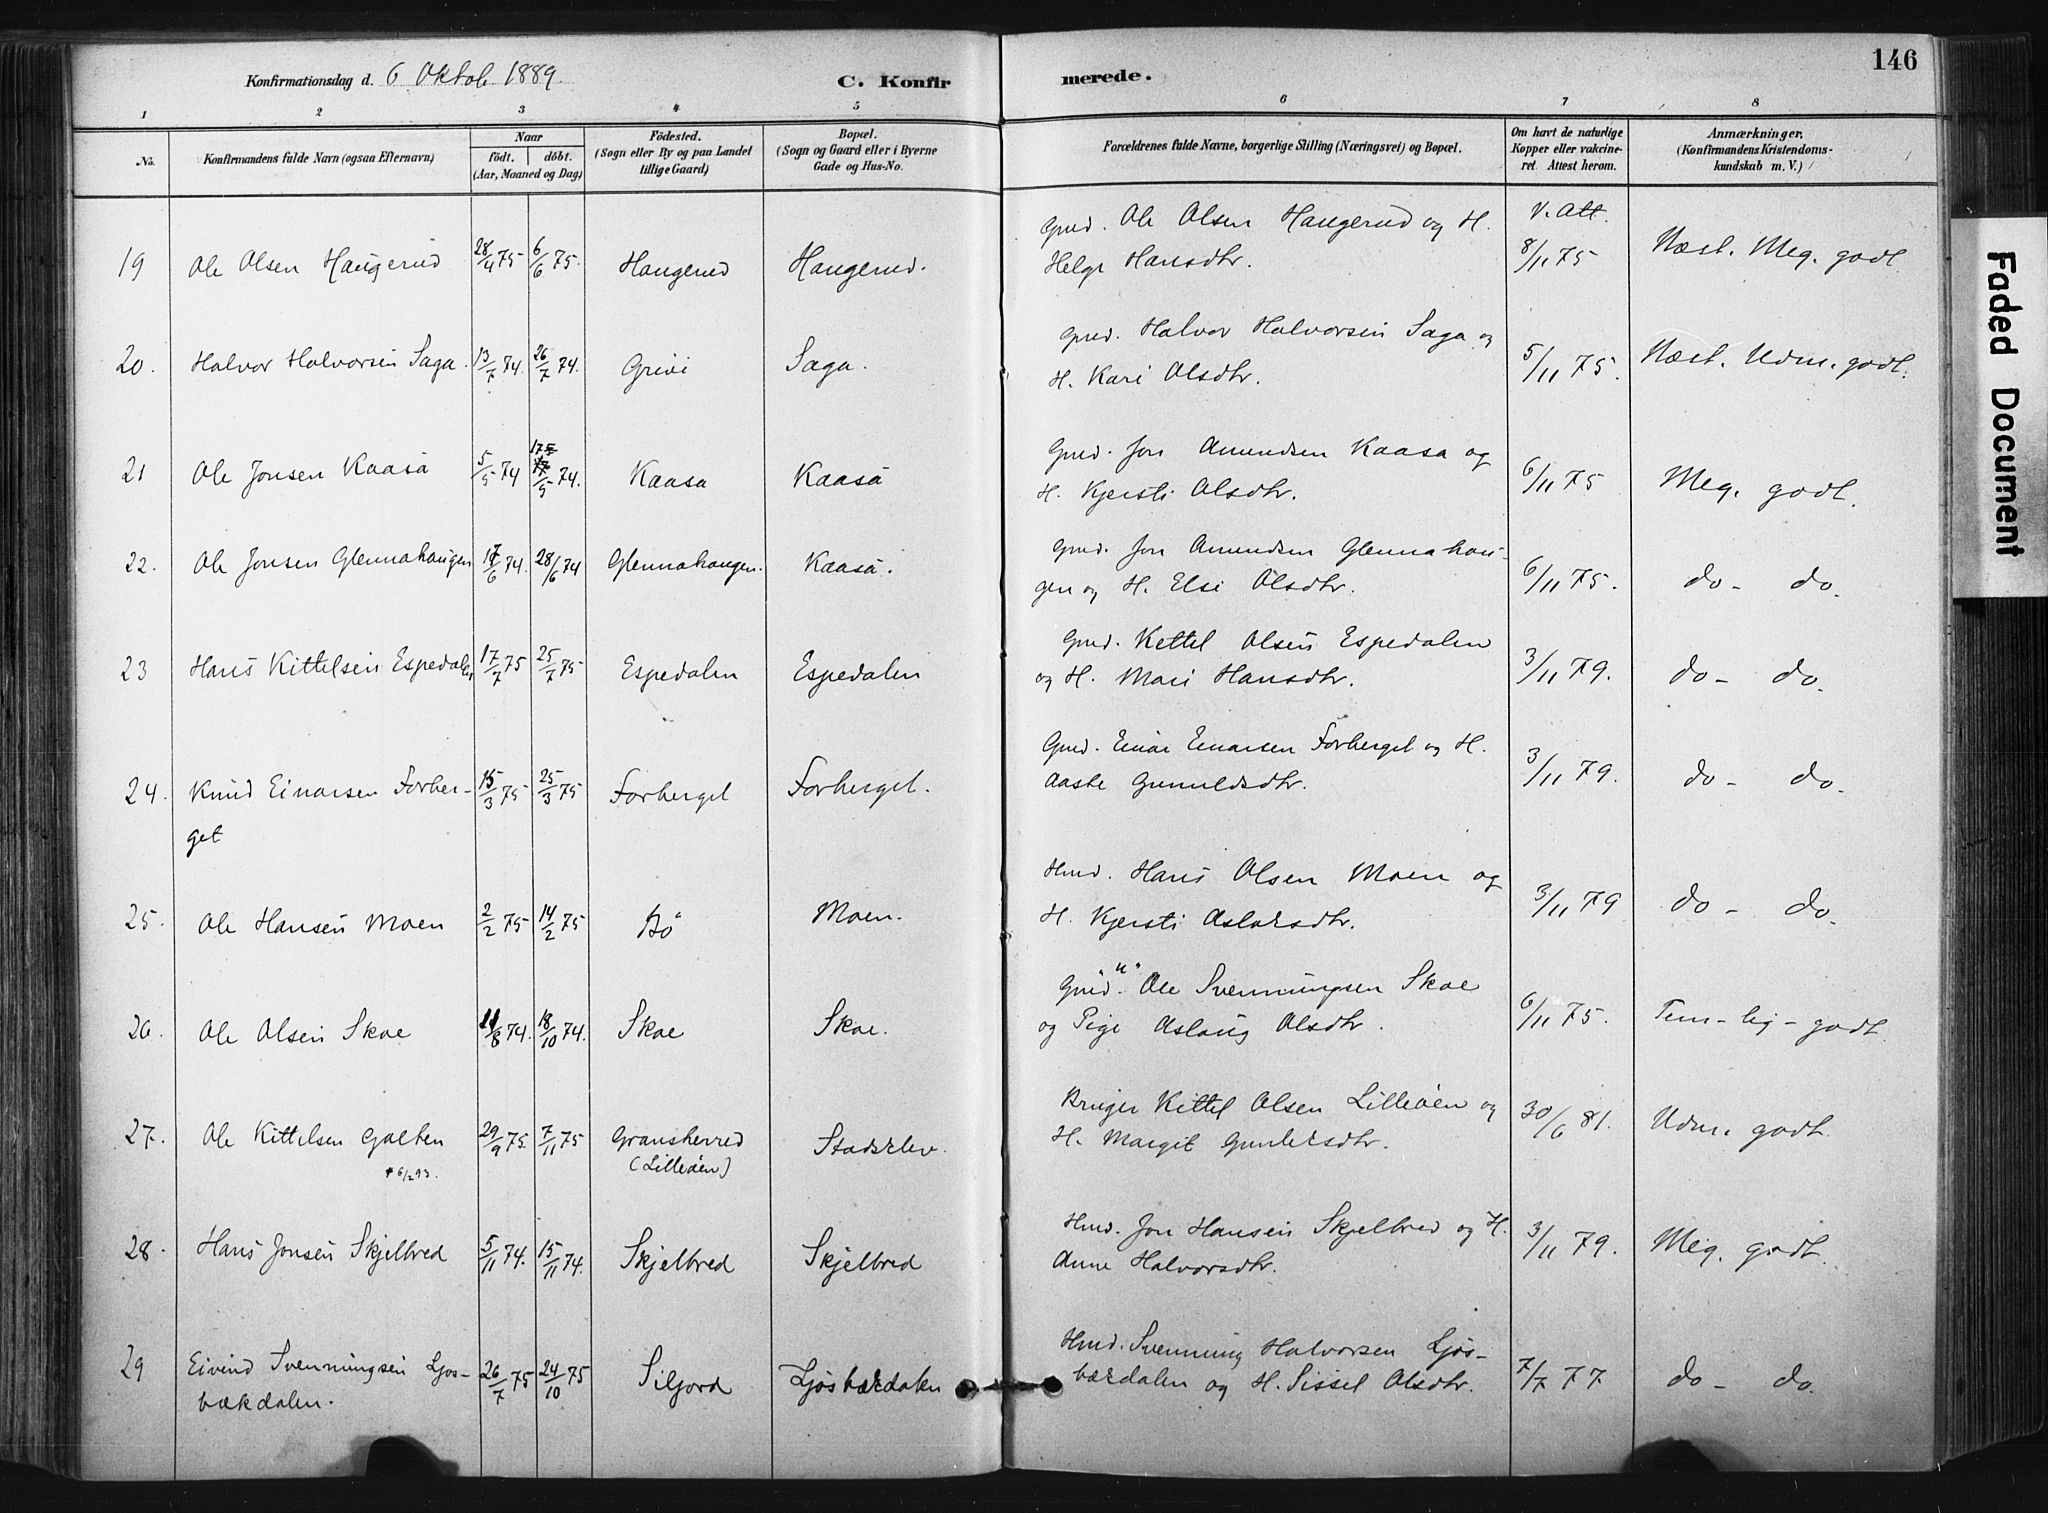 146
Konfirmationsdag d. 6 Oktob. 1889.
C. Konfirmerede.
1 2 3 4 5 6 7 8
No.
Konfirmandens fulde Navn (ogsaa Efternavn)
Naar
födt. döbt.
(Aar, Maaned og Dag)
Födested.
(Sogn eller By og paa Landet
tillige Gaard)
Bopæl.
(Sogn og Gaard eller i Byerne
Gade og Hus-No.
Forældrenes fulde Navne, borgerlige Stilling (Næringsvei) og Bopæl.
Om havt de naturlige
Kopper eller vakcine-
ret. Attest herom.
Anmærkninger.
(Konfirmandens Kristendoms-
kundskab m. V.)
19 Ole Olsen Haugerud 28/4 75 6/6 75. Haugerud Haugerud. Gmd. Ole Olsen Haugerud og H.
Helge Hansdtr. V. Att. 8/11 75 Næst. Meg. godt.
20. Halvor Halvorsen Saga. 13/7 74. 26/7 74. Grivi Saga. Gmd. Halvor Halvorsen Saga og
H. Kari Olsdtr. 5/11 75. Næst. Udm. godt.
21 Ole Jonsen Kaasa 5/5 74 17/5 74. Kaasa Kaasa Gmd. Jon Amundsen Kaasa og
H. Kjersti Olsdtr. 6/11 75 Meg. godt.
22. Ole Jonsen Glennahaugen 17/6 74. 28/6 74 Glennahaugen. Kaasa. Gmd. Jon Amundsen Glennahau-
gen og H. Elsi Olsdtr. 6/11 75. do - do.
23 Hans Kittelsen Espedalen 17/7 75 25/7 75 Espedalen Espedalen Gmd. Kettel Olsen Espedalen
og H. Mari Hansdtr. 3/11 79. do - do.
24. Knud Einarsen Forber-
get 15/3 75 25/3 75 Forberget Forberget. Gmd. Einar Einarsen Forberget og H.
Aaste Gunuldsdtr. 3/11 79. do - do.
25. Ole Hansen Moen 2/2 75 14/2 75 Bö Moen. Hmd. Hans Olsen Moen og
H. Kjersti Aslaksdtr. 3/11 79 do - do.
26. Ole Olsen Skoe 11/8 74. 18/10 74. Skoe Skoe. Gmd. "u" Ole Svenningsen Skoe
og Pige Aslaug Olsdtr. 6/11 75. Tem-lig-godt.
27. Ole Kittelsen Galten 29/9 75. 7/11 75 Gransherred Stadsklev. Bruger Kittel Olsen Lilleöen og
6/2 93. (Lilleöen) H. Margit Gunleksdtr. 30/6 81. Udm. godt.
28. Hans Jonsen Skjelbred 5/11 74. 15/11 74. Skjelbred Skjelbred Hmd. Jon Hansen Skjelbred og H.
Anne Halvorsdtr. 3/11 79. Meg. godt.
29 Eivind Svenningsen Ljos-
bækdalen. 26/7 75 24/10 75 Siljord Ljosbækdalen Hmd. Svenning Halvorsen Ljös-
bækdalen og H. Sissel Olsdtr. 7/7 77. do - do.
Faded Document